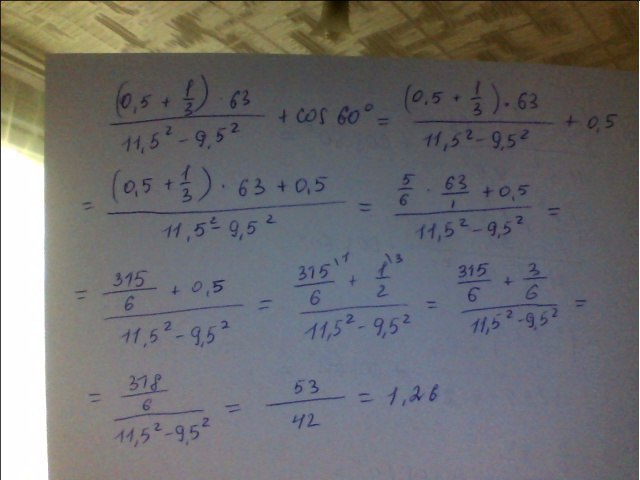 ((0,5 + 1/3) · 63)/(11,5² - 9,5²) + cos 60° = ((0,5 + 1/3) · 63)/(11,5² - 9,5²) + 0,5
= ((0,5 + 1/3) · 63 + 0,5)/(11,5² - 9,5²) = (5/6 · 63/1 + 0,5)/(11,5² - 9,5²) =
= (315/6 + 0,5)/(11,5² - 9,5²) = (315/6 \1 + 1/2 \3)/(11,5² - 9,5²) = (315/6 + 3/6)/(11,5² - 9,5²) =
= (318/6)/(11,5² - 9,5²) = 53/42 = 1,26